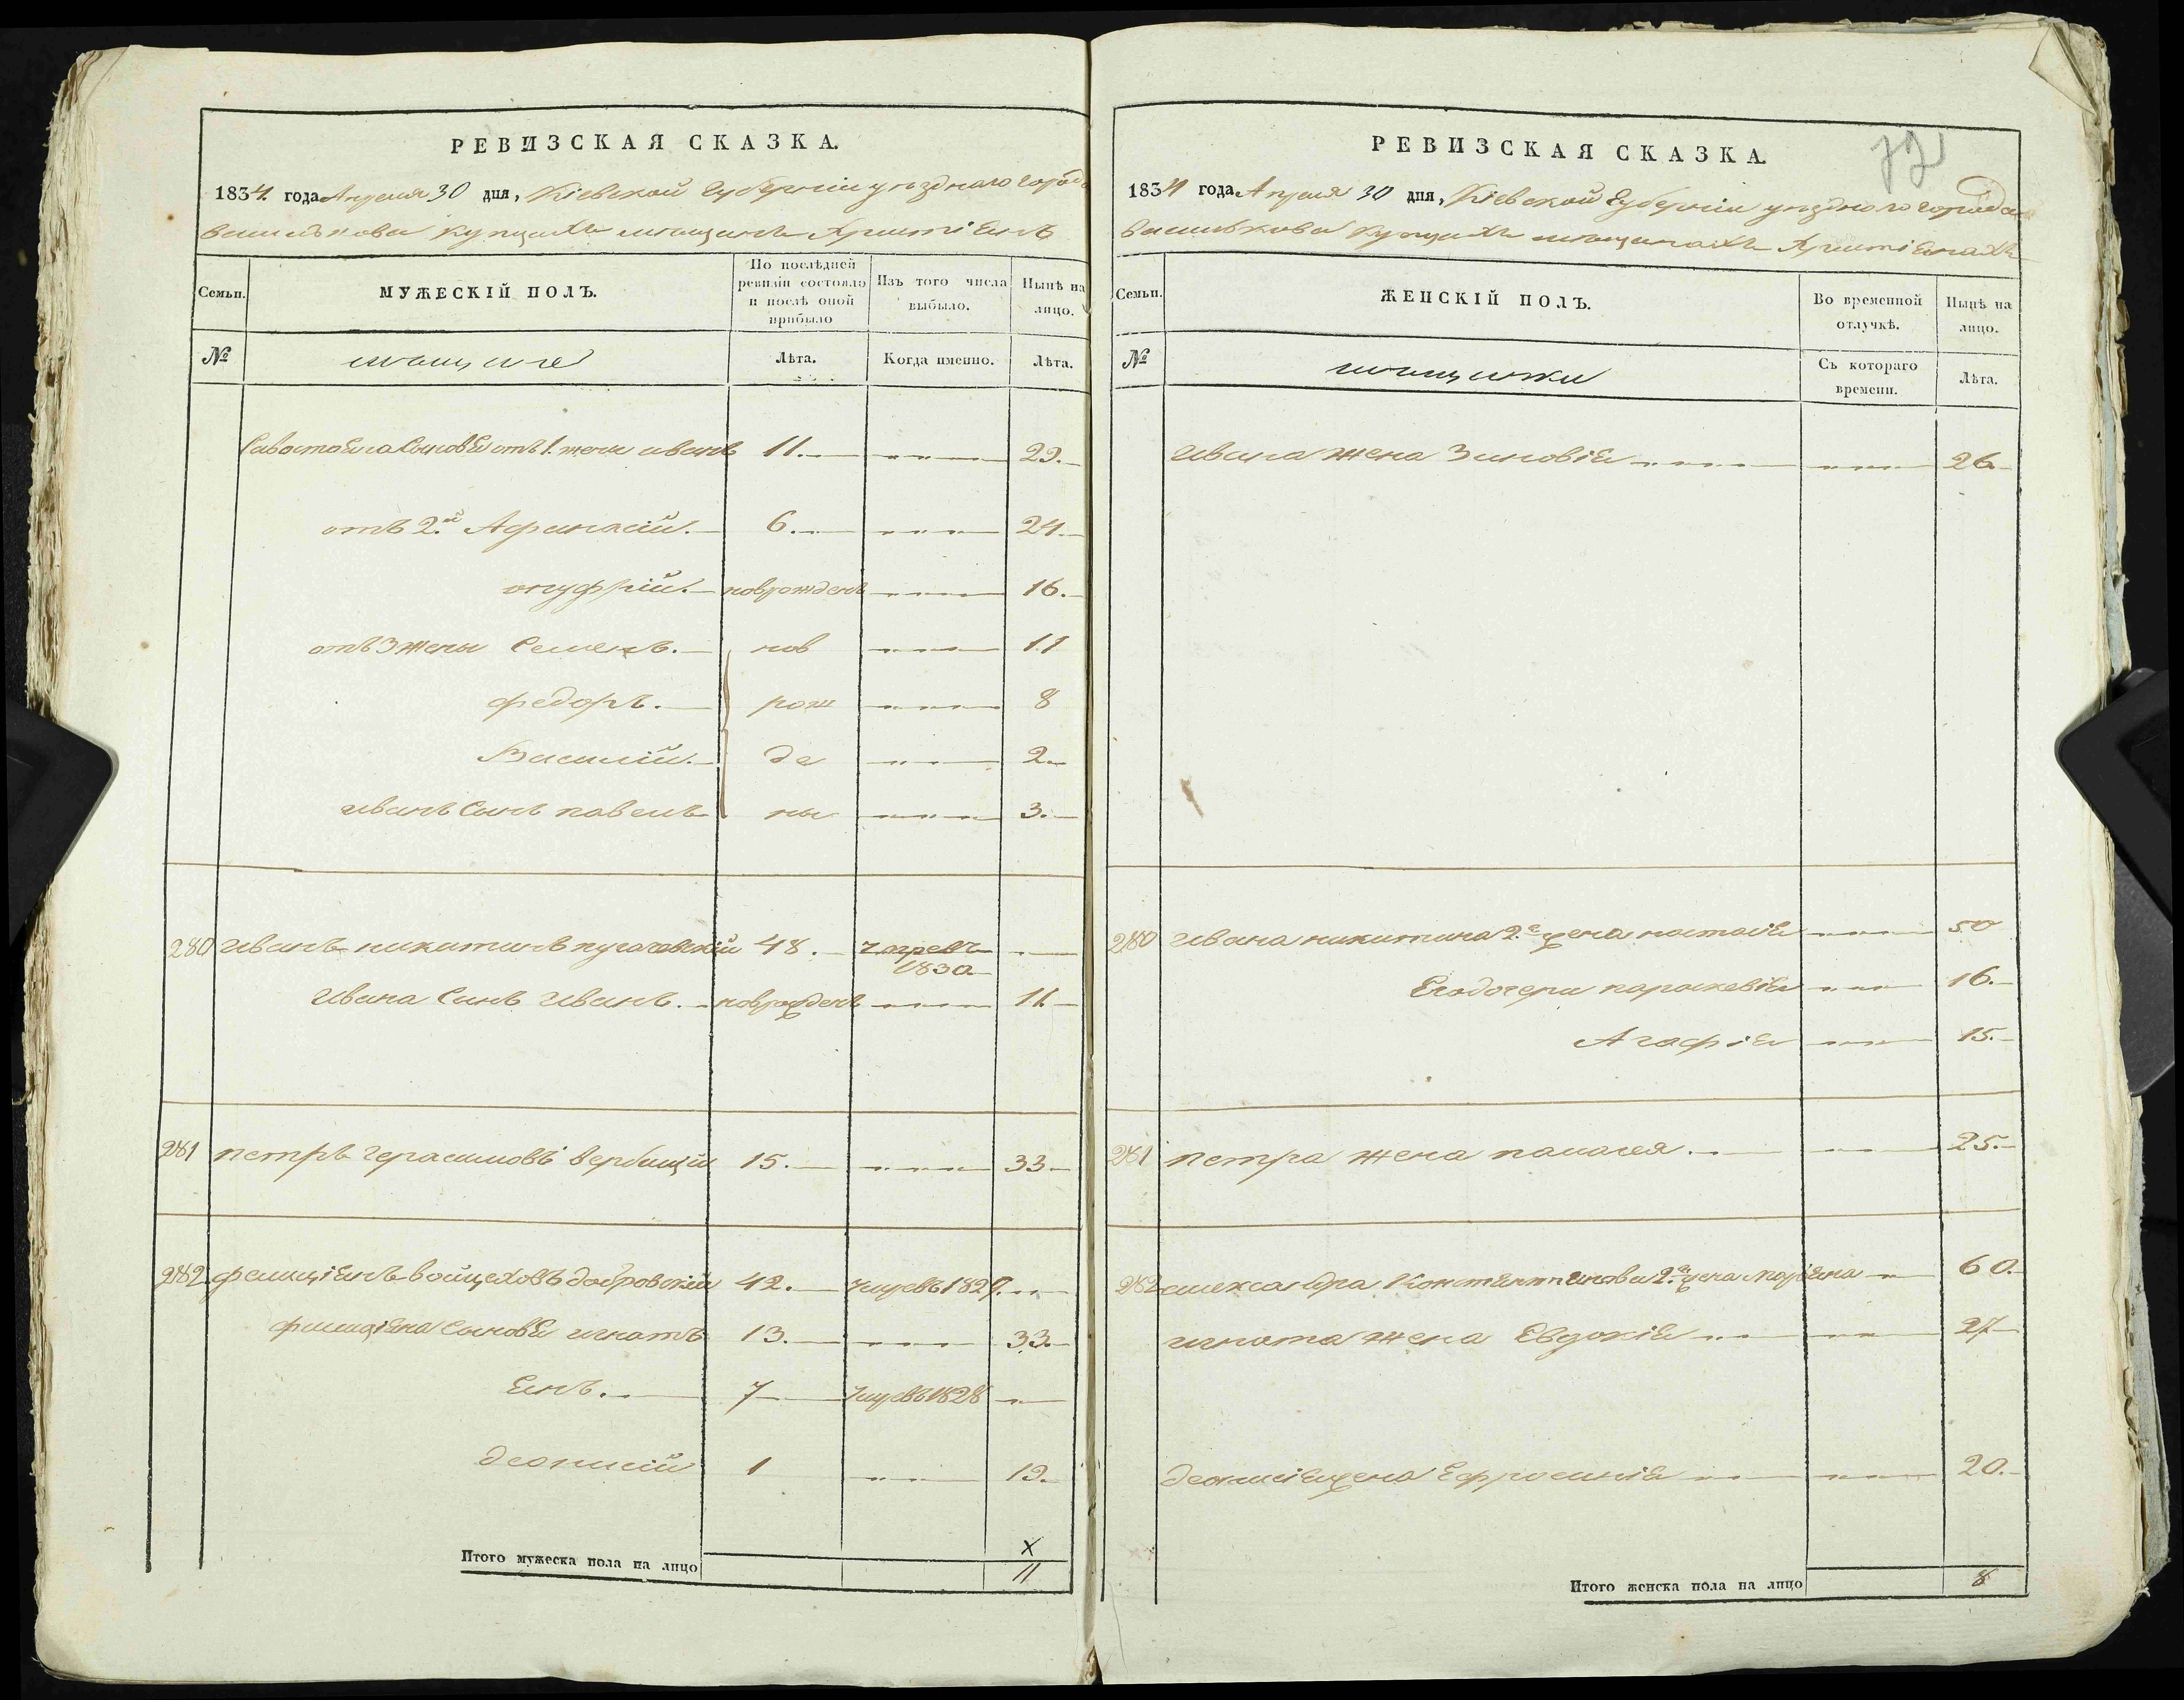 РЕВИЗСКАЯ СКАЗКА.
1834 года Апреля 30 дня, Кіевской Губерніи уезднаго города
василькова купцахъ мещанъ Христіянъ
Семьи. МУЖЕСКІЙ ПОЛЪ. По послѣдней ревизіи состояло и послѣ оной прибыло Изъ того числа выбыло. Нынѣ на лицо.
№ мещане Лѣта. Когда именно. Лѣта.
Савостьяна Сыновья отъ 1. жены иванъ 11. 29.
отъ 2.й Афанасій. 6. 24.
онуфрій. новрожденъ 16.
отъ 3 жены Семенъ. нов 11
федоръ. рож 8
Василій. де 2
иванъ Сынъ павелъ ны 3.
280 иванъ никитинъ 48. умре въ 1830
Ивана Сынъ Иванъ. новрожденъ 11
281 петръ герасимовъ вербицкій 15. 33
282 фелиціянъ войцеховъ добровскій 42. умре въ 1827.
фелиціяна Сыновья игнатъ 13. 33.
Янъ. 7 умре въ 1828
деонисій 1 19.
Итого мужеска пола на лицо 11
РЕВИЗСКАЯ СКАЗКА.
1834 года Апреля 30 дня, Кіевской Губерніи уезднаго города
василькова купцахъ мещанахъ Христіянахъ
Семьи. ЖЕНСКІЙ ПОЛЪ. Во временной отлучкѣ. Нынѣ на лицо.
№ мещанки Съ котораго времени. Лѣта.
Ивана жена Зиновія 26
280 ивана никитина 2.я жена настасія 50
Его дочери параскевія 16.
Агафія 15.
281 петра жена 25.
282 александра 2.я жена Маріяна 60.
игната жена Евдокія 27
деонисія жена Ефросинія 20.
Итого женска пола на лицо 8